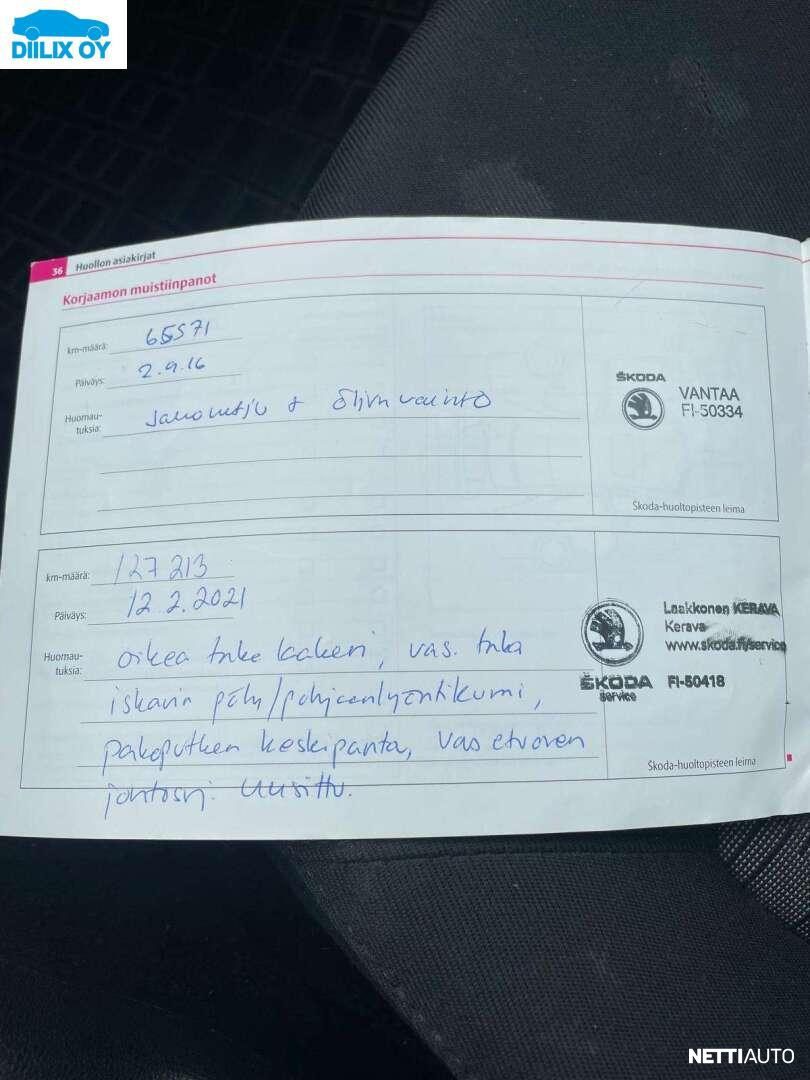 DIILIX OY
36 Huollon asiakirjat
Korjaamon muistiinpanot
km-määrä: 65571
Päiväys: 2.9.16
Huomau-
tuksia: Jakoketju + öljynvaihto
ŠKODA
VANTAA
FI-50334
Škoda-huoltopisteen leima
km-määrä: 127 213
Päiväys: 12.2.2021
Huomau-
tuksia: oikea taka laakeri, vas. taka
iskarin pöly/pohjaanlyöntikumi,
pakoputken keskipanta, vas etuoven
johtosrj. Uusittu.
Laakkonen KERAVA
Kerava
www.skoda.fi/service
ŠKODA FI-50418
Service
Škoda-huoltopisteen leima
NETTIAUTO